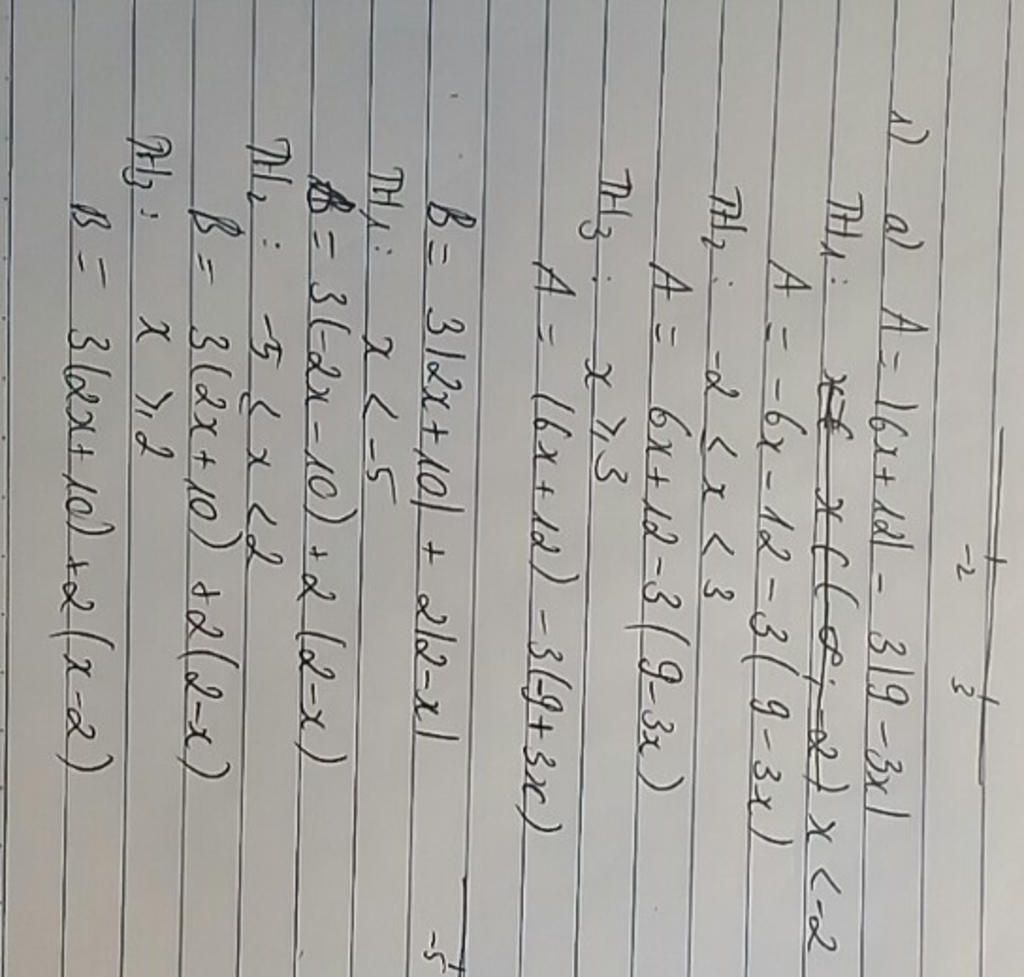 -2 3
1) a) A = |6x+12| - 3|9-3x|
TH1: x < -2
A = -6x-12-3(9-3x)
TH2: -2 < x < 3
A = 6x+12-3(9-3x)
TH3: x ⩾ 3
A = (6x+12)-3(-9+3x)
B = 3|2x+10| + 2|2-x|
-5
TH1: x < -5
B = 3(-2x-10)+2(2-x)
TH2: -5 < x < 2
B = 3(2x+10)+2(2-x)
TH3: x ⩾ 2
B = 3(2x+10)+2(x-2)